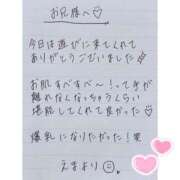 お兄様へ♡
今日は遊びに来てくれて
ありがとうございました
お肌すべすべ〜！って手が
離れなくなっちゃうくらい
堪能してくれて良かった♡
爆乳になりたかった！笑
えまより